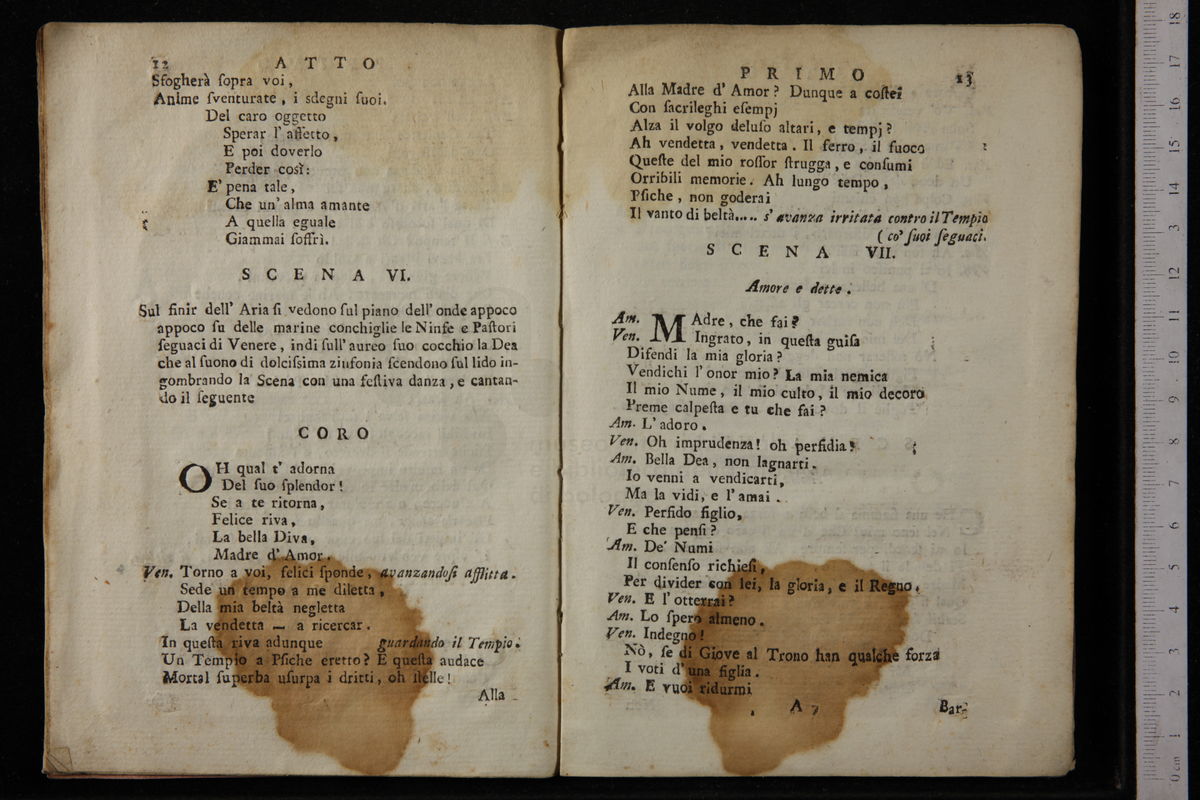 12 ATTO
Sfogherà ſopra voi,
Anime ſventurate, i sdegni ſuoi.
Del caro oggetto
Sperar l' affetto,
E poi doverlo
Perder così:
E' pena tale,
Che un' alma amante
A quella eguale
Giammai ſoffrì.
SCENA VI.
Sul finir dell' Aria ſi vedono ſul piano dell' onde appoco
appoco ſu delle marine conchiglie le Ninfe e Paſtori
ſeguaci di Venere, indi ſull' aureo ſuo cocchio la Dea
che al ſuono di dolciſsima zinfonia ſcendono ſul lido in-
gombrando la Scena con una feſtiva danza, e cantan-
do il ſeguente
CORO
OH qual t' adorna
Del ſuo ſplendor!
Se a te ritorna,
Felice riva,
La bella Diva,
Madre d' Amor.
Ven. Torno a voi, felici ſponde, avanzandoſi afflitta.
Sede un tempo a me diletta,
Della mia beltà negletta
La vendetta — a ricercar.
In queſta riva adunque guardando il Tempio.
Un Tempio a Pſiche eretto? E queſta audace
Mortal ſuperba uſurpa i dritti, oh ſtelle!
Alla
PRIMO 13
Alla Madre d' Amor? Dunque a coſtei
Con ſacrileghi eſempj
Alza il volgo deluſo altari, e tempj?
Ah vendetta, vendetta. Il ferro, il fuoco
Queſte del mio roſſor ſtrugga, e conſumi
Orribili memorie. Ah lungo tempo,
Pſiche, non goderai
Il vanto di beltà..... s' avanza irritata contro il Tempio
(co' ſuoi ſeguaci.
SCENA VII.
Amore e dette.
Am. MAdre, che fai?
Ven. Ingrato, in queſta guiſa
Difendi la mia gloria?
Vendichi l' onor mio? La mia nemica
Il mio Nume, il mio culto, il mio decoro
Preme calpeſta e tu che fai?
Am. L' adoro.
Ven. Oh imprudenza! oh perfidia!
Am. Bella Dea, non lagnarti.
Io venni a vendicarti,
Ma la vidi, e l' amai.
Ven. Perfido figlio,
E che penſi?
Am. De' Numi
Il conſenſo richieſi,
Per divider con lei, la gloria, e il Regno.
Ven. E l' otterrai?
Am. Lo ſpero almeno.
Ven. Indegno!
Nò, ſe di Giove al Trono han qualche forza
I voti d' una figlia.
Am. E vuoi ridurmi
A 7 Bar-